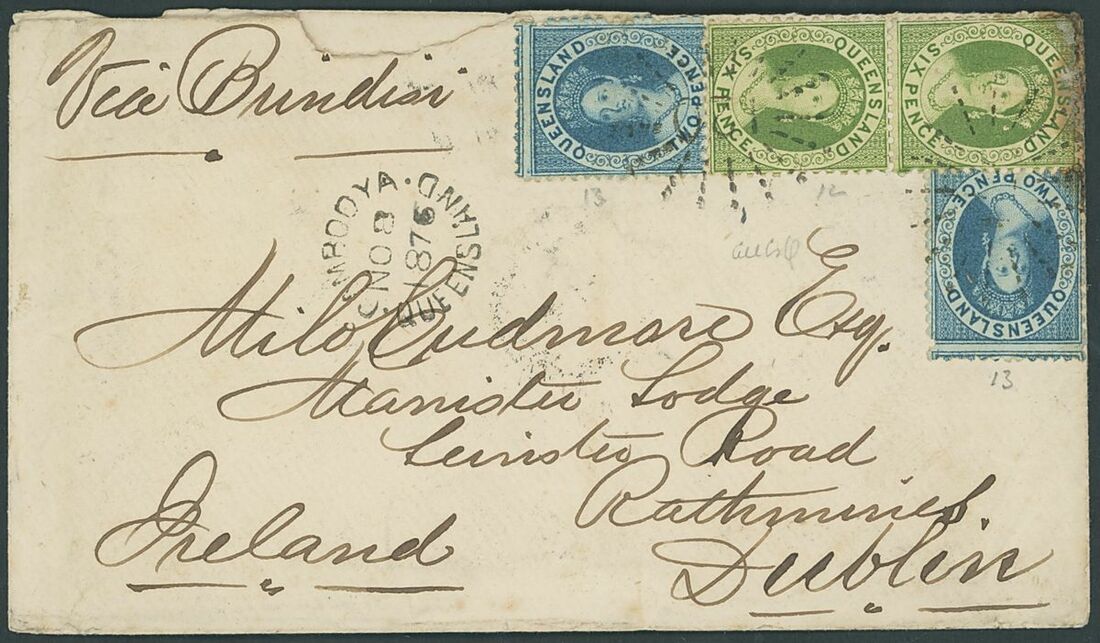 Via Brindisi
QUEENSLAND TWO PENCE
QUEENSLAND SIX PENCE
QUEENSLAND SIX PENCE
QUEENSLAND TWO PENCE
13
12
13
CAMBOOYA.
NO 8
1876
QUEENSLAND
Milo Cudmore Esq.
Manister Lodge
Leinster Road
Rathmines.
Dublin
Ireland